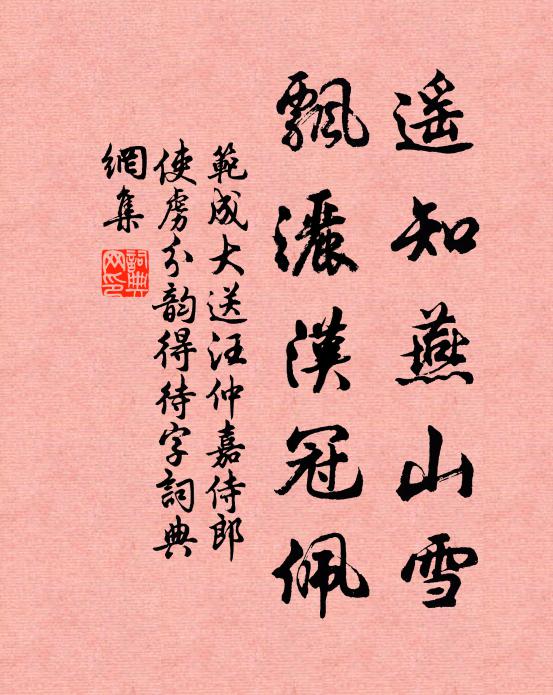 遥知燕山雪
飄灑漢冠佩
範成大送汪仲嘉侍郎
使虜分韵得待字詞典
網集
詞典网印